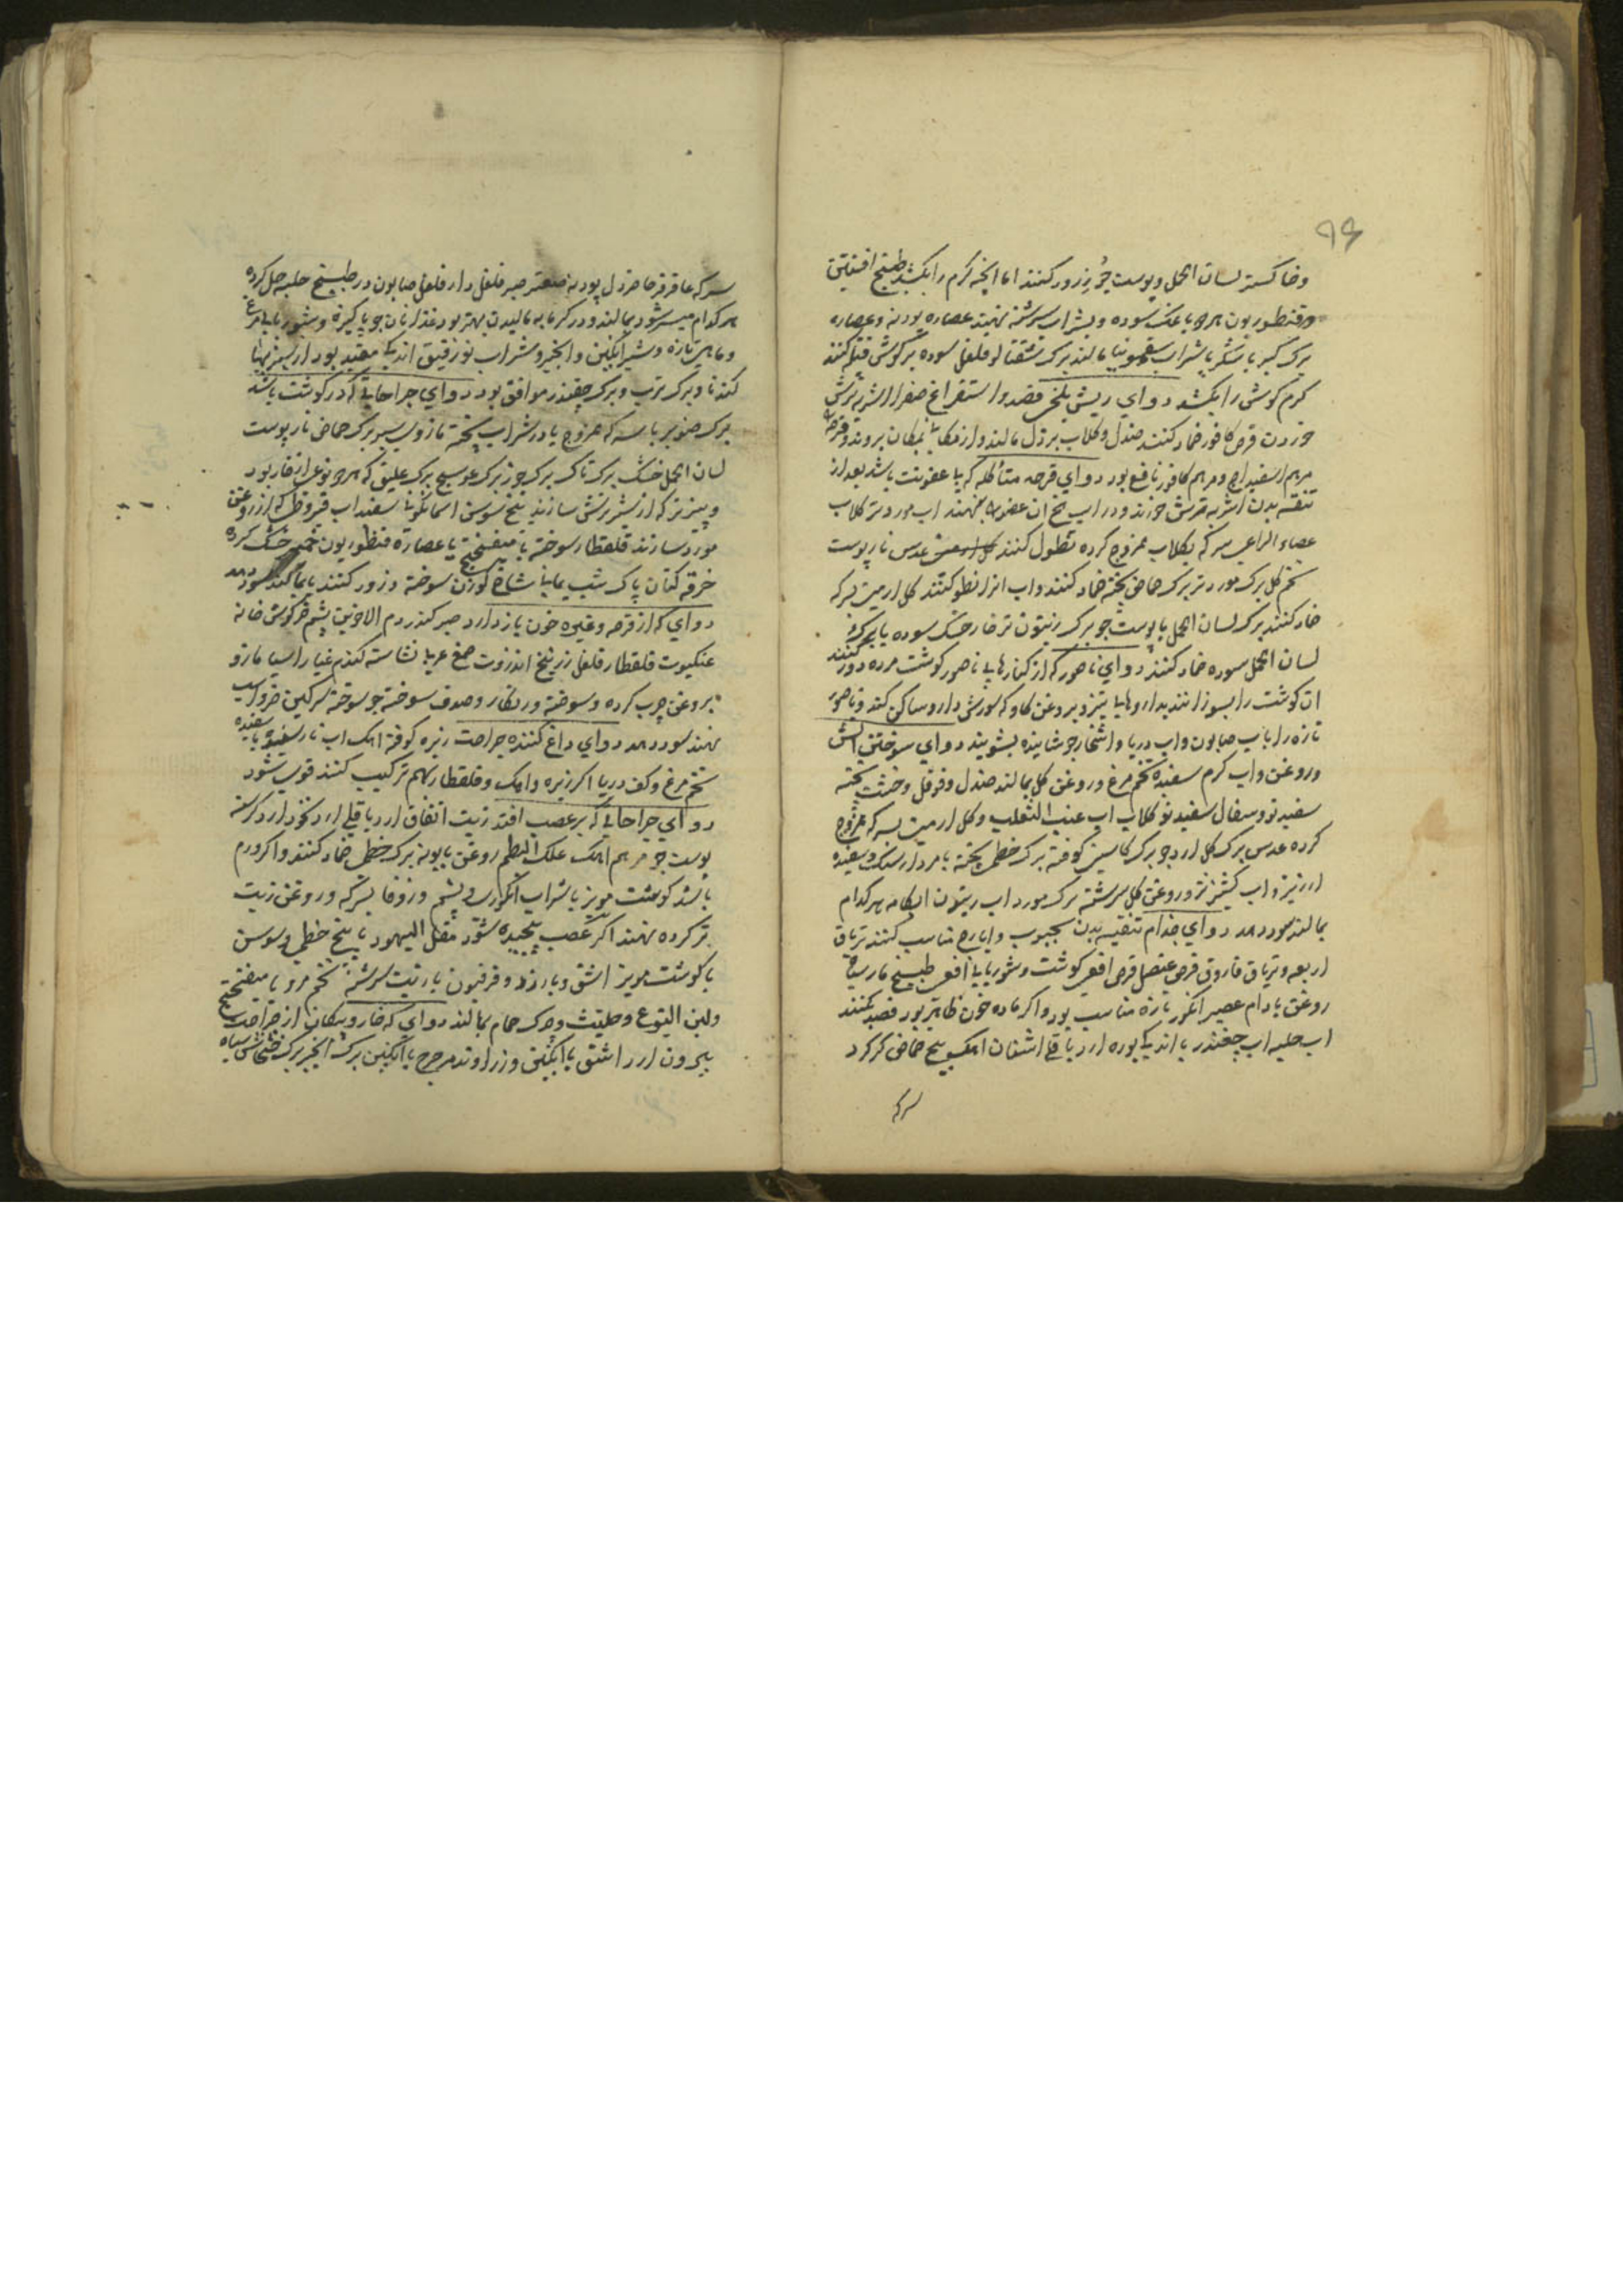 ۹۶
وخاکستر لسان الحمل وپوست جوز زرور کنند اما انچه کرم را بکشد طبیخ افسنتین
وقنطوریون هر دو با عسل سوده وبشراب سرشته نهند عصاره پودنه وعصاره
برک کبر با شکر با شراب سقمونیا مالند برک شفتالو فلفل سوده در کوش فتیله کنند
کرم کوش را بکشد دوای ریش بلخی فصد واستفراغ صفرا از اشربه ترش
خوردن قرص کافور ضماد کنند صندل وکلاب بر دل مالند واز مکان بمکان بروند
مرهم اسفیداج ومرهم کافور نافع بود دوای قرحه متأکله که با عفونت باشد بعد از
تنقیه بدن اشربه ترش خورند ودر اب یخ ان عضو نهند اب مورد تر کلاب
عصاء الراعی سرکه بکلاب ممزوج کرده نطول کنند عدس نار پوست
تخم کل برک مورد تر برک حماض پخته ضماد کنند واب انرا نطول کنند کل ارمنی بسرکه
ضماد کنند برک لسان الحمل با پوست جو برک زیتون تر خار خشک سوده
لسان الحمل سوده ضماد کنند دوای ناصور که از کنارهای ناصور کوشت مرده دور کنند
ان کوشت را بسوزانند بداروهای تیز وبروغن کاو که سورش دارو ساکن کند وناصور
تازه را باب صابون واب دریا واشخار جوشانیده بشویند دوای سوختن اتش
وروغن واب کرم سفیده تخم مرغ وروغن کل بمالند صندل وفوفل وخشت پخته
سفید نو وسفال سفید نو کلاب اب عنب الثعلب وکل ارمنی بسرکه ممزوج
کرده عدس برک کل ارد جو برک کاسنی کوفته برک خطمی پخته با مردارسنک وسفیده
ارزیز واب کشنیز تر وروغن کل سرشته برک مورد اب زیتون ابکامه هر کدام
بمالند سود دهد دوای جذام تنقیه بدن بحبوب وایارج مناسب کنند تریاق
اربعه وتریاق فاروق قرص عنصل قرص افعی کوشت وشوربای افعی طبیخ مار سیاه
روغن بادام عصیر انکور تازه مناسب بود واکر ماده خون ظاهر بود فصد کنند
اب حلبه اب چغندر با اندکی بوره ارد باقلی اشنان اهک بیخ حماض کرکرد
سرکه
سرکه عاقرقرحا خردل پودنه صعتر صبر فلفل دار فلفل صابون در طبیخ حلبه حل کرده
هر کدام میسر شود بمالند ودر کرمابه مالیدن بهتر بود غذا نان جو پاکیزه وشوربای مرغ
وماهی تازه وشیر انکبین وانجیر وشراب نو رقیق اندکی مفید بود
کندنا وبرک ترب وبرک چغندر موافق بود دوای جراحاتی که در کوشت باشد
برک صنوبر با سرکه ممزوج یا در شراب پخته مازوی سبز برک حماض نار پوست
لسان الحمل خشک برک تاک برک جوز برک عوسج برک علیق که هر دو نوعی از خار بود
وپنیر تر که از شیر ترش سازند بیخ سوسن اسمانکونی سفیداب قیروطی که از روغن
مورد سازند قلقطار سوخته با میفختج یا عصاره قنطوریون خشک کرده
خرقه کتان پاک شب یمانی شاخ کوزن سوخته زرور کنند یا بمالند سود دهد
دوای که از قرحه وغیره خون باز دارد صبر کندر دم الاخوین پشم خرکوش خانه
عنکبوت قلقطار فلفل زرنیخ انزروت صمغ عربی نشاسته کندم غبار اسیا مازو
بروغن چرب کرده وسوخته وزنکار وصدف سوخته جو سوخته سرکین خر واسب
نهند سود دهد دوای داغ کننده جراحت زیره کوفته اهک اب نارسیده با سفیده
تخم مرغ وکف دریا اکر زیره واهک وقلقطار بهم ترکیب کنند قوی شود
دوای جراحاتی که بر عصب افتد زیت انفاق ارد باقلی ارد نخود ارد کرسنه
پوست جو مرهم اهک علک البطم روغن بابونه برک خطمی ضماد کنند واکر ورم
باشد کوشت مویز با شراب انکوری وپشم وزوفا بسرکه وروغن زیت
تر کرده نهند اکر عصب پیچیده شود مقل الیهود با بیخ خطمی وسوسن
با کوشت مویز اشق وبارزد وفرفیون با زیت سرشته تخم مرو با میفختج
ولبن الیتوع وحلتیت وچرک حمام بمالند دوای که خار وپیکان از جراحت
بیرون ارد اشق با انکبین وزراوند مدحرج با انکبین برک انجیر برک خشخاش سیاه